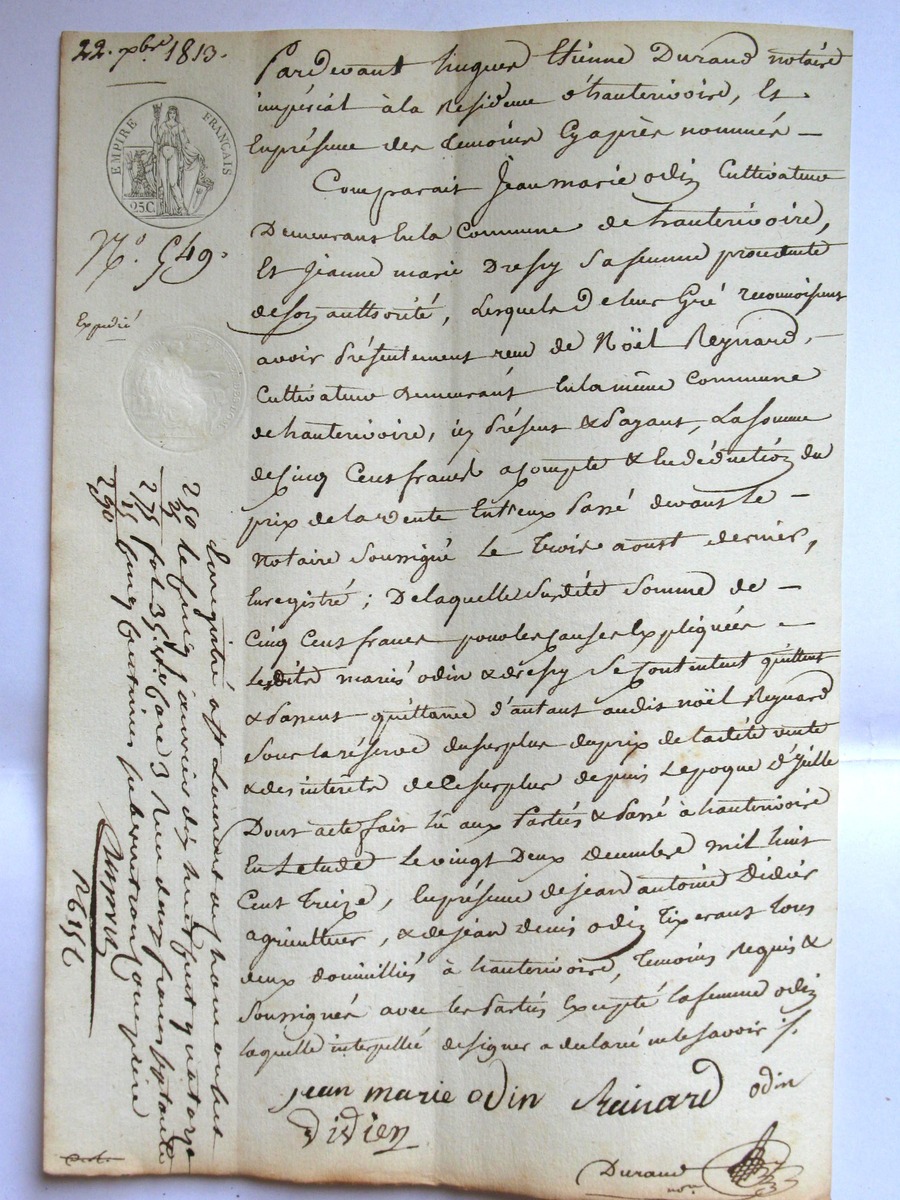 22. xbre. 1813.
EMPIRE FRANÇAIS
25C.
N.º 549.
Expedié
Pardevant hugues Etienne Durand notaire
imperial à la Residence d'hauterivoire, Et
En présence des temoins Cy après nommés —
Comparait Jean marie odin Cultivateur
Demeurant En la Commune de hauterivoire,
Et Jeanne marie Dressy Sa femme procedente
de son authorité, Lesquels de leur Gré reconnoissent
avoir Présentement recu de Nöel Reynard, —
Cultivateur demeurant En la même Commune
de hauterivoire, icy Présent & Payant, La Somme
de Cinq Cens francs acompte & En déduction du
prix de la vente Entr'eux Passé devant le —
Notaire Soussigné Le trois aoust dernier,
Enregistré ; De laquelle Susdite Somme de —
Cinq Cens francs pour les Causes Expliquées —
Lesdits mariés odin & dressy Se Contentent quittent
& Passent quittance d'autant audit noël Reynard
Sous la réserve du surplus du prix de la dite vente
& des interets de Ce surplus depuis L'epoque d'Icelle
Dont acte fait lû aux Parties & Passé à hauterivoire
En L'etude Le vingt Deux decembre mil huit
Cent Treize, En présence de jean antoine Didier
agriculteur, & de jean denis odin Tixerant tous
deux domicilliés à hauterivoire, Temoins Requis &
Soussignés avec les Parties Excepté la femme odin
laquelle interpellée de signer a declaré ne le savoir /.
jean marie odin Reinard odin
Didier
Durand
nore
Enregistré à St Laurent de
le Cinq janvier dix huit Cent quatorze
fol. 35 Vº Case 3 Recu deux francs Cinquante
Cinq Centimes Subvention Comprise
250
25
275
15
290